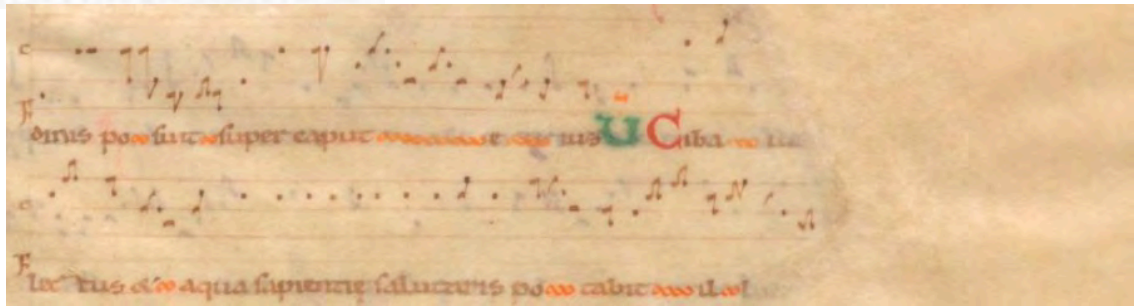 dnus po suit super caput e ius V̈ Ciba
lec tus & aqua sapientię salutaris po tabit il